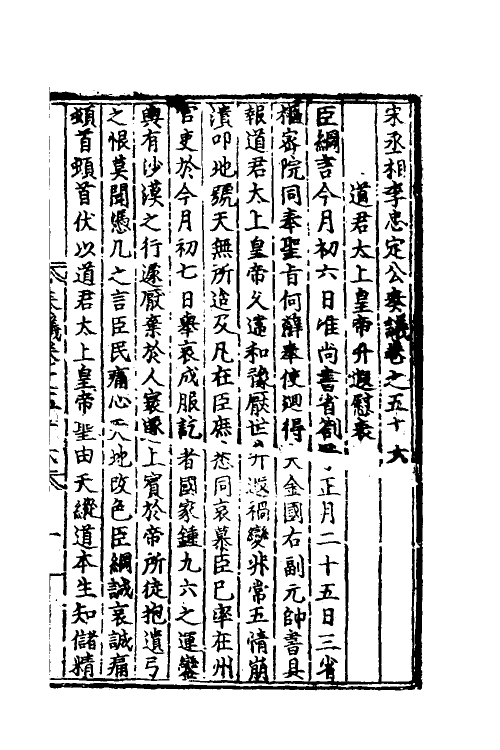 宋丞相李忠定公奏議卷之五十六
道君太上皇帝升遐慰表
臣綱言今月初六日准尚書省劄正月二十五日三省
樞密院同奉聖旨何蘚奉使迴得大金國右副元帥書具
報道君太上皇帝久違和豫厭世升遐禍變非常五情崩
潰叩地號天無所逮及凡在臣庶悲同哀慕臣已率在州
官吏於今月初七日舉哀成服訖者國家鍾九六之運鑾
輿有沙漠之行遽厭棄於人寰上賓於帝所徒抱遺弓
之恨莫聞憑几之言臣民痛心天地改色臣綱誠哀誠痛
頓首頓首伏以道君太上皇帝聖由天縱道本生知儲精